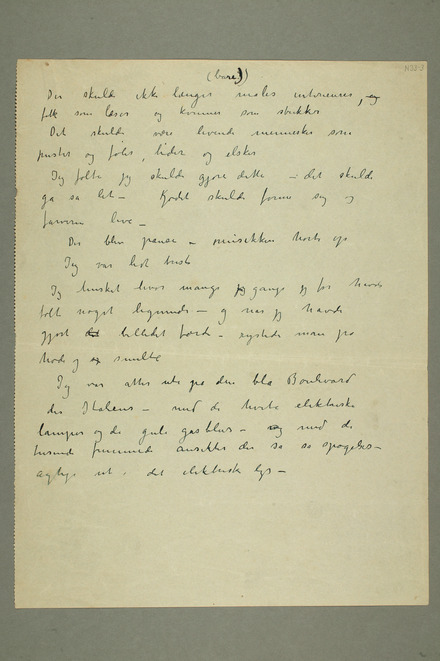 (bare)
N32-3
Der skulde ikke længer males interieurer, og
folk som læser og kvinner som strikker
Det skulde være levende mennesker som
puster og føler, lider og elsker
Jeg følte jeg skulde gjøre dette – det skulde
gå så let – Kjødet skulde forme sig og
farverne leve –
Der blev pause – musikken hørte op
Jeg var lidt trist
Jeg husket hvor mange gange jeg før havde
følt noget lignende – og når jeg havde
gjort billedet færdi – rystede man på
hode og smilte
Jeg var atter ute på den blå Boulevard
des Italiens – med de hvite elektriske
lamper og de gule gasblus – med de
tusende fremmede ansikter der så så spøgelses-
agtige ut i det elektriske lys –